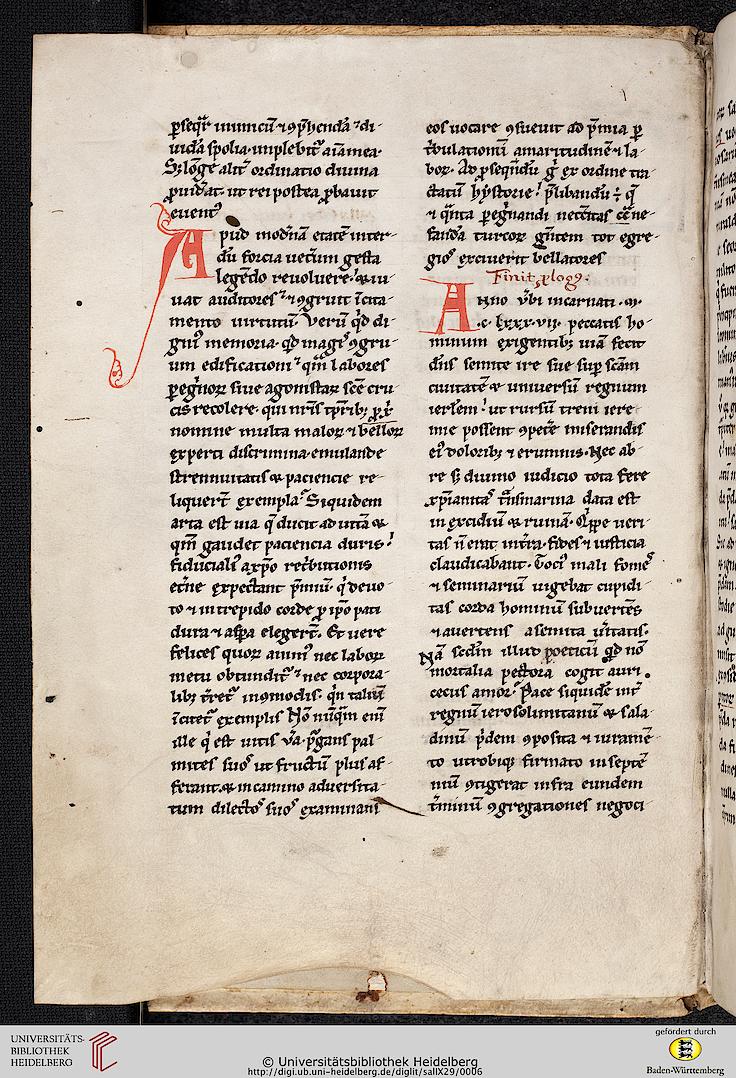 p̄seqr̄ inimicū ⁊ ꝯp̄hendā ⁊ di-
vidā spolia. implebit᷑ aīa mea.
Sꝫ lōge alit᷑ ordinatio divina
p̄vidat. ut rei postea ꝓbavit
event᷒
Apud mod̄nā etatē inter-
dū forcia vet̄um gesta
legēdo revoluere. ⁊
auditores ⁊ ꝯgruit īcita-
mento virtutū. Verū qd̄ di-
gni᷒ memoria. qd̄ magi᷒ ꝯgru-
um edificationi ⁊ qm̄ labores
ꝑegnoꝝ sive agonistaꝝ scē cru-
cis recolere. qui nr̄is tꝑrib;
nomine multa maloꝝ ⁊ belloꝝ
experti discrimina. emulande
strennuitatis & paciencie re-
liquert̄ exempla. Siquidem
arta est via q̄ ducit ad vitā &
qm̄ gaudet paciencia duris.
fiduciali᷒ a xp̄o ret᷑butionis
et̄ne expectant p̄miū. q̄ devo-
to ⁊ intrepido corde ꝓ ip̄o pati
dura ⁊ asp̄a elegert̄. Et vere
felices quoꝝ animi᷒ nec laboꝝ
metu obtundit᷑ ⁊ nec corpora-
lib; t᷑ret᷑ incōmodis. qn̄ taliū
īcitet᷑ exemplis. Nō nūqm̄ eni
ille q̄ est vitis va. ꝓgans pal-
mites suos ut fructū plus af-
ferant. & in camino adversita-
tum dilectos suos examinans
eos vocare ꝯsuevit ad p̄mia ꝑ
t᷑bulationū amaritudinē ⁊ la-
bor. Ad ꝓseqndū g̊ ex ordine tra-
ctatū hystorie. p̄libandū ÷ q̄
⁊ qn̄ta ꝑegnandi necc̄itas eē ne-
fanda turcoꝝ gn̄tem tot egre-
gios exciverit bellatores
Finit ꝓlogꝰ.
Anno v̄bi incarnati .m.
.c. lxxx.vii. peccatis ho-
minum exigentib; viā fecit
dn̄s semite ire sue sup scām
civitatē & universū regnum
ierl̄em. ut rursū treni iere-
mie possent ꝯpete miserandis
ei᷒ dolorib; ⁊ erumnis. Nec ab-
re sꝫ divino iudicio tota fere
xp̄ianitas t᷑nsmarina data est
in excidiū & ruinā. Qp̄pe veri-
tas n̄ erat int᷑ra. fides ⁊ iusticia
claudicabant. Toci᷒ mali fomes
⁊ seminariū vigebat cupidi-
tas corda hominū subvertēs
⁊ avertens a semita v̄itatis.
Nā sedm̄ illud poeticū qd̄ nō
mortalia pectora cogit auri
cecus amor. Pace siquidē int᷑
regnū ierosolimitanū & sala-
dinū p̄dem ꝯposita ⁊ iuramē-
to utrobiq; firmato in septē-
niū ꝯtigerat infra eundem
t᷑minū ꝯgregationes negoci-
UNIVERSITÄTS-
BIBLIOTHEK
HEIDELBERG
© Universitätsbibliothek Heidelberg
http://digi.ub.uni-heidelberg.de/diglit/salIX29/0006
gefördert durch
Baden-Württemberg